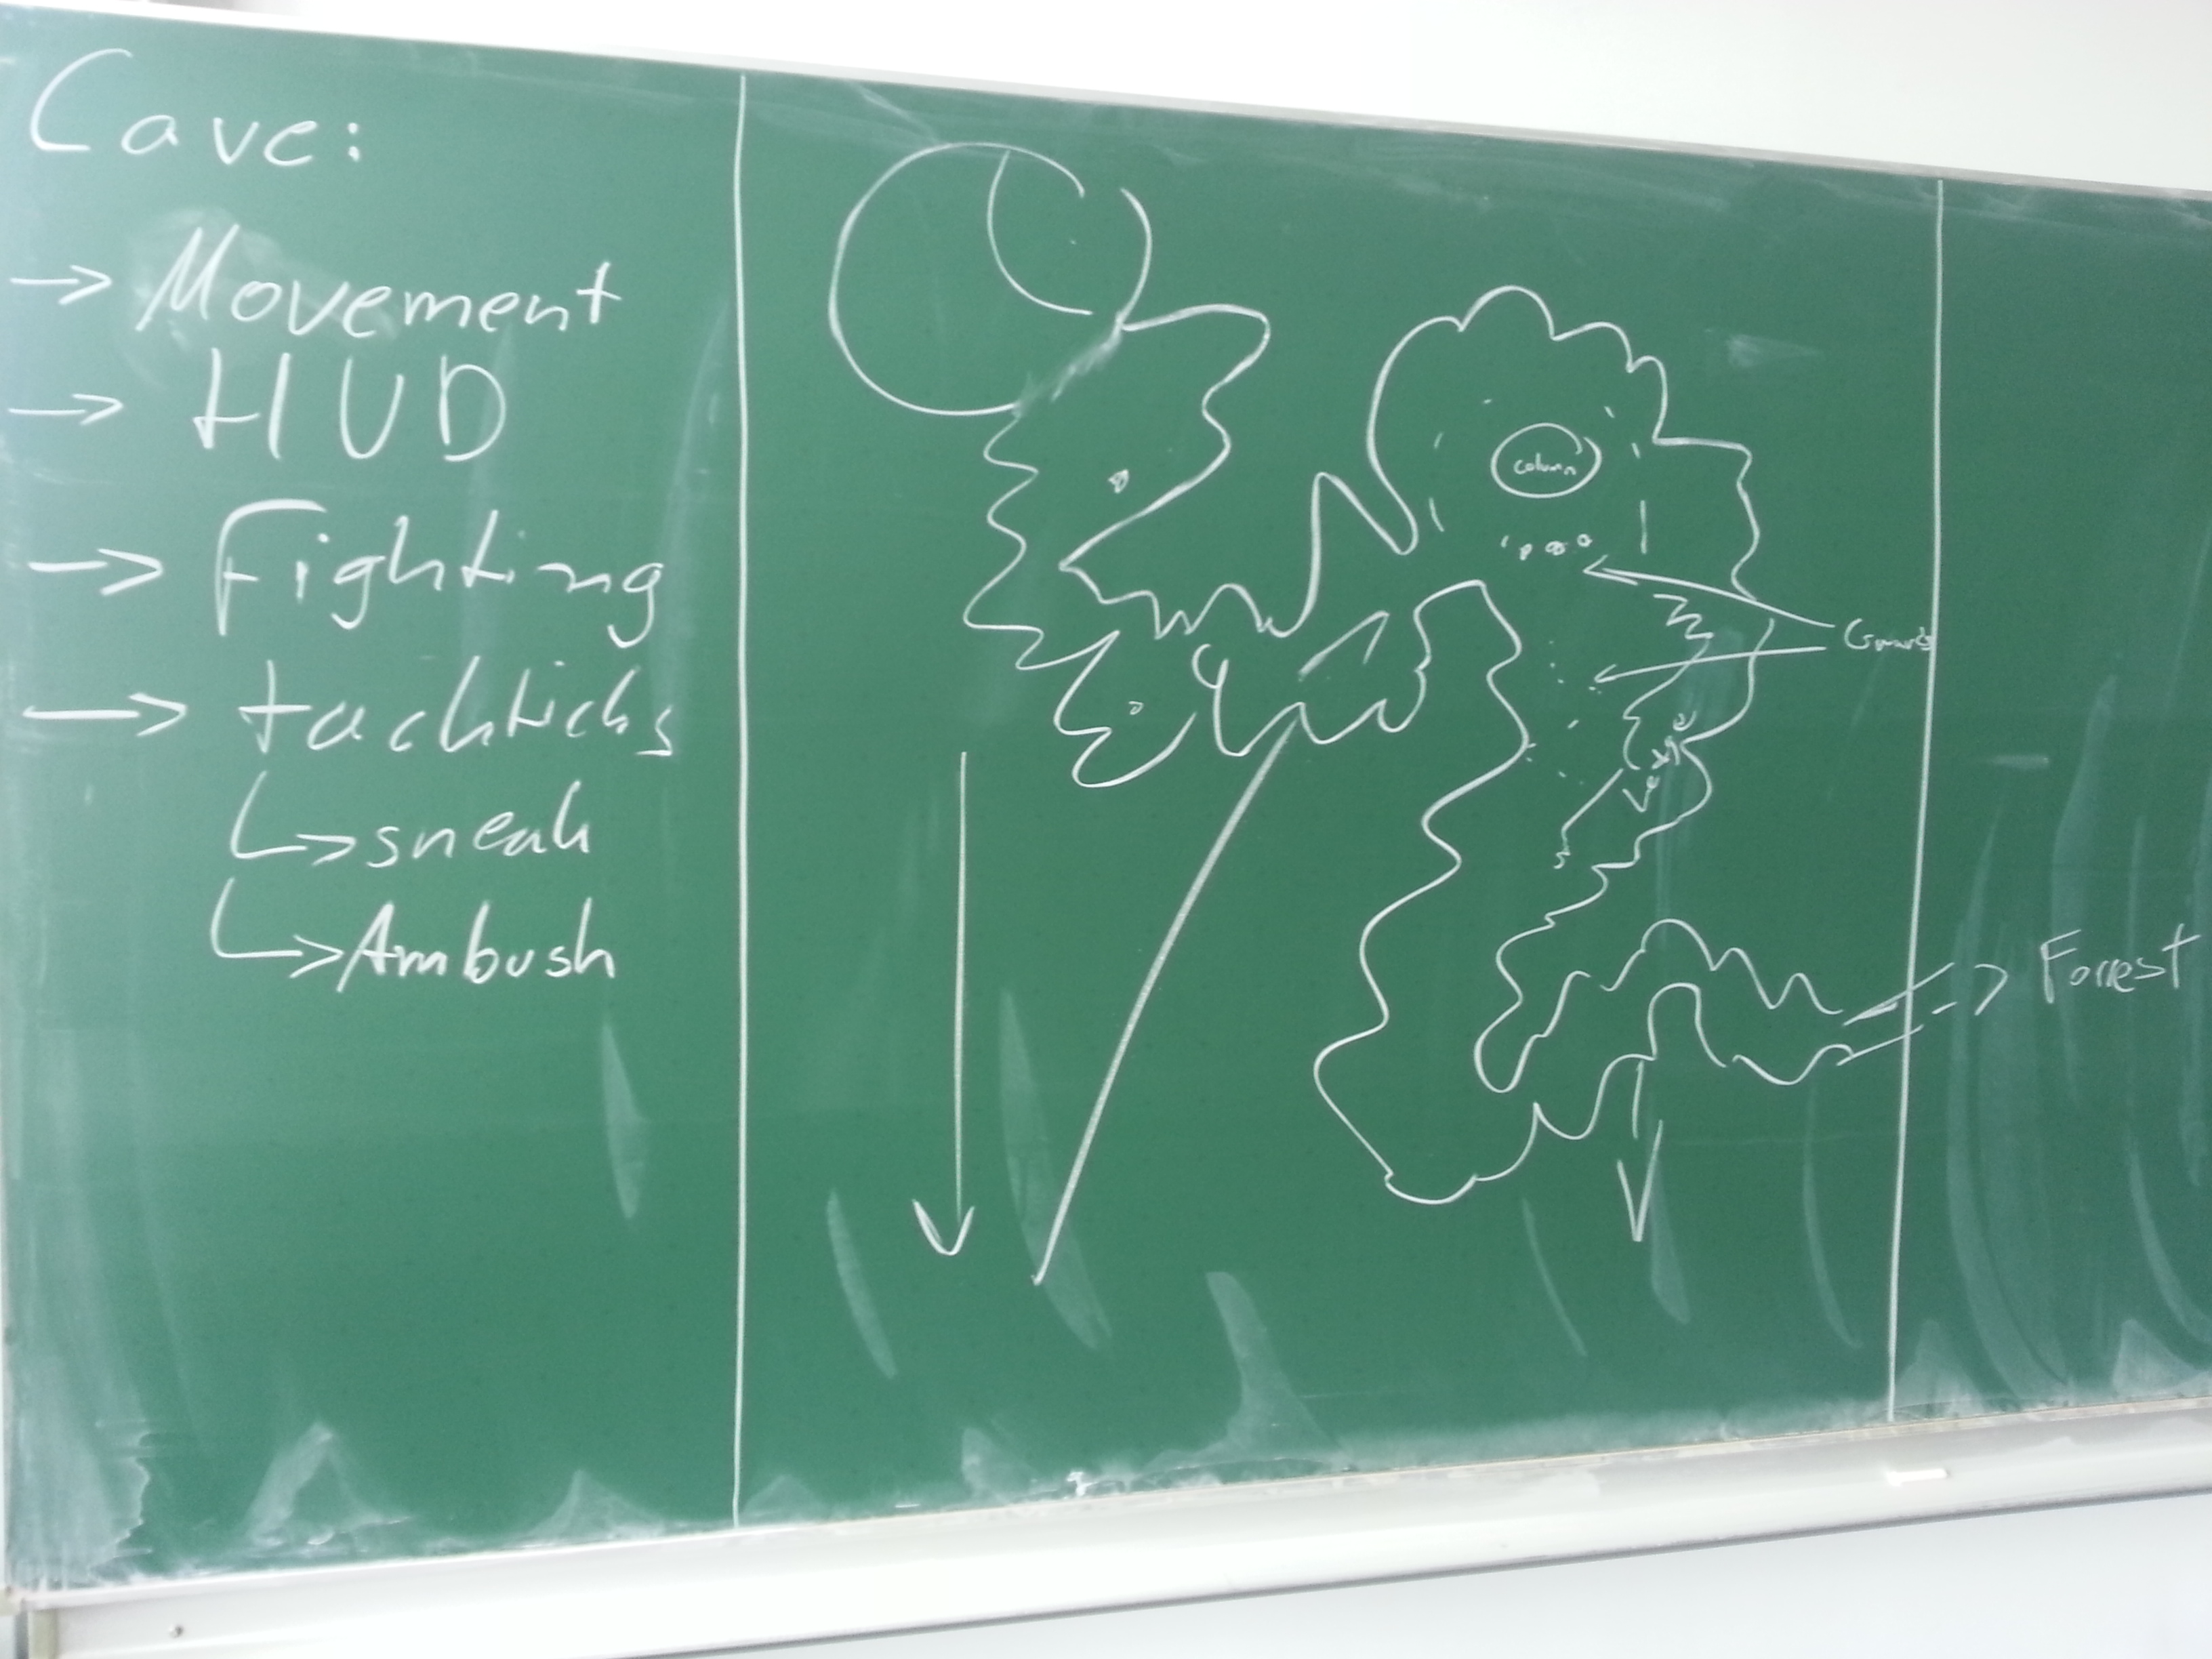 Cave:
→ Movement
→ HUD
→ Fighting
→ tachticks
↳ sneak
↳ Ambush
column
Guards
Forrest